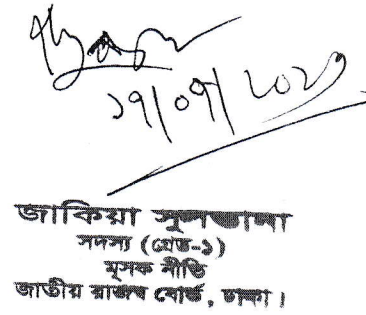 ১৭/০৭/২০২৩
জাকিয়া সুলতানা
সদস্য (গ্রেড-১)
মূসক নীতি
জাতীয় রাজস্ব বোর্ড, ঢাকা।